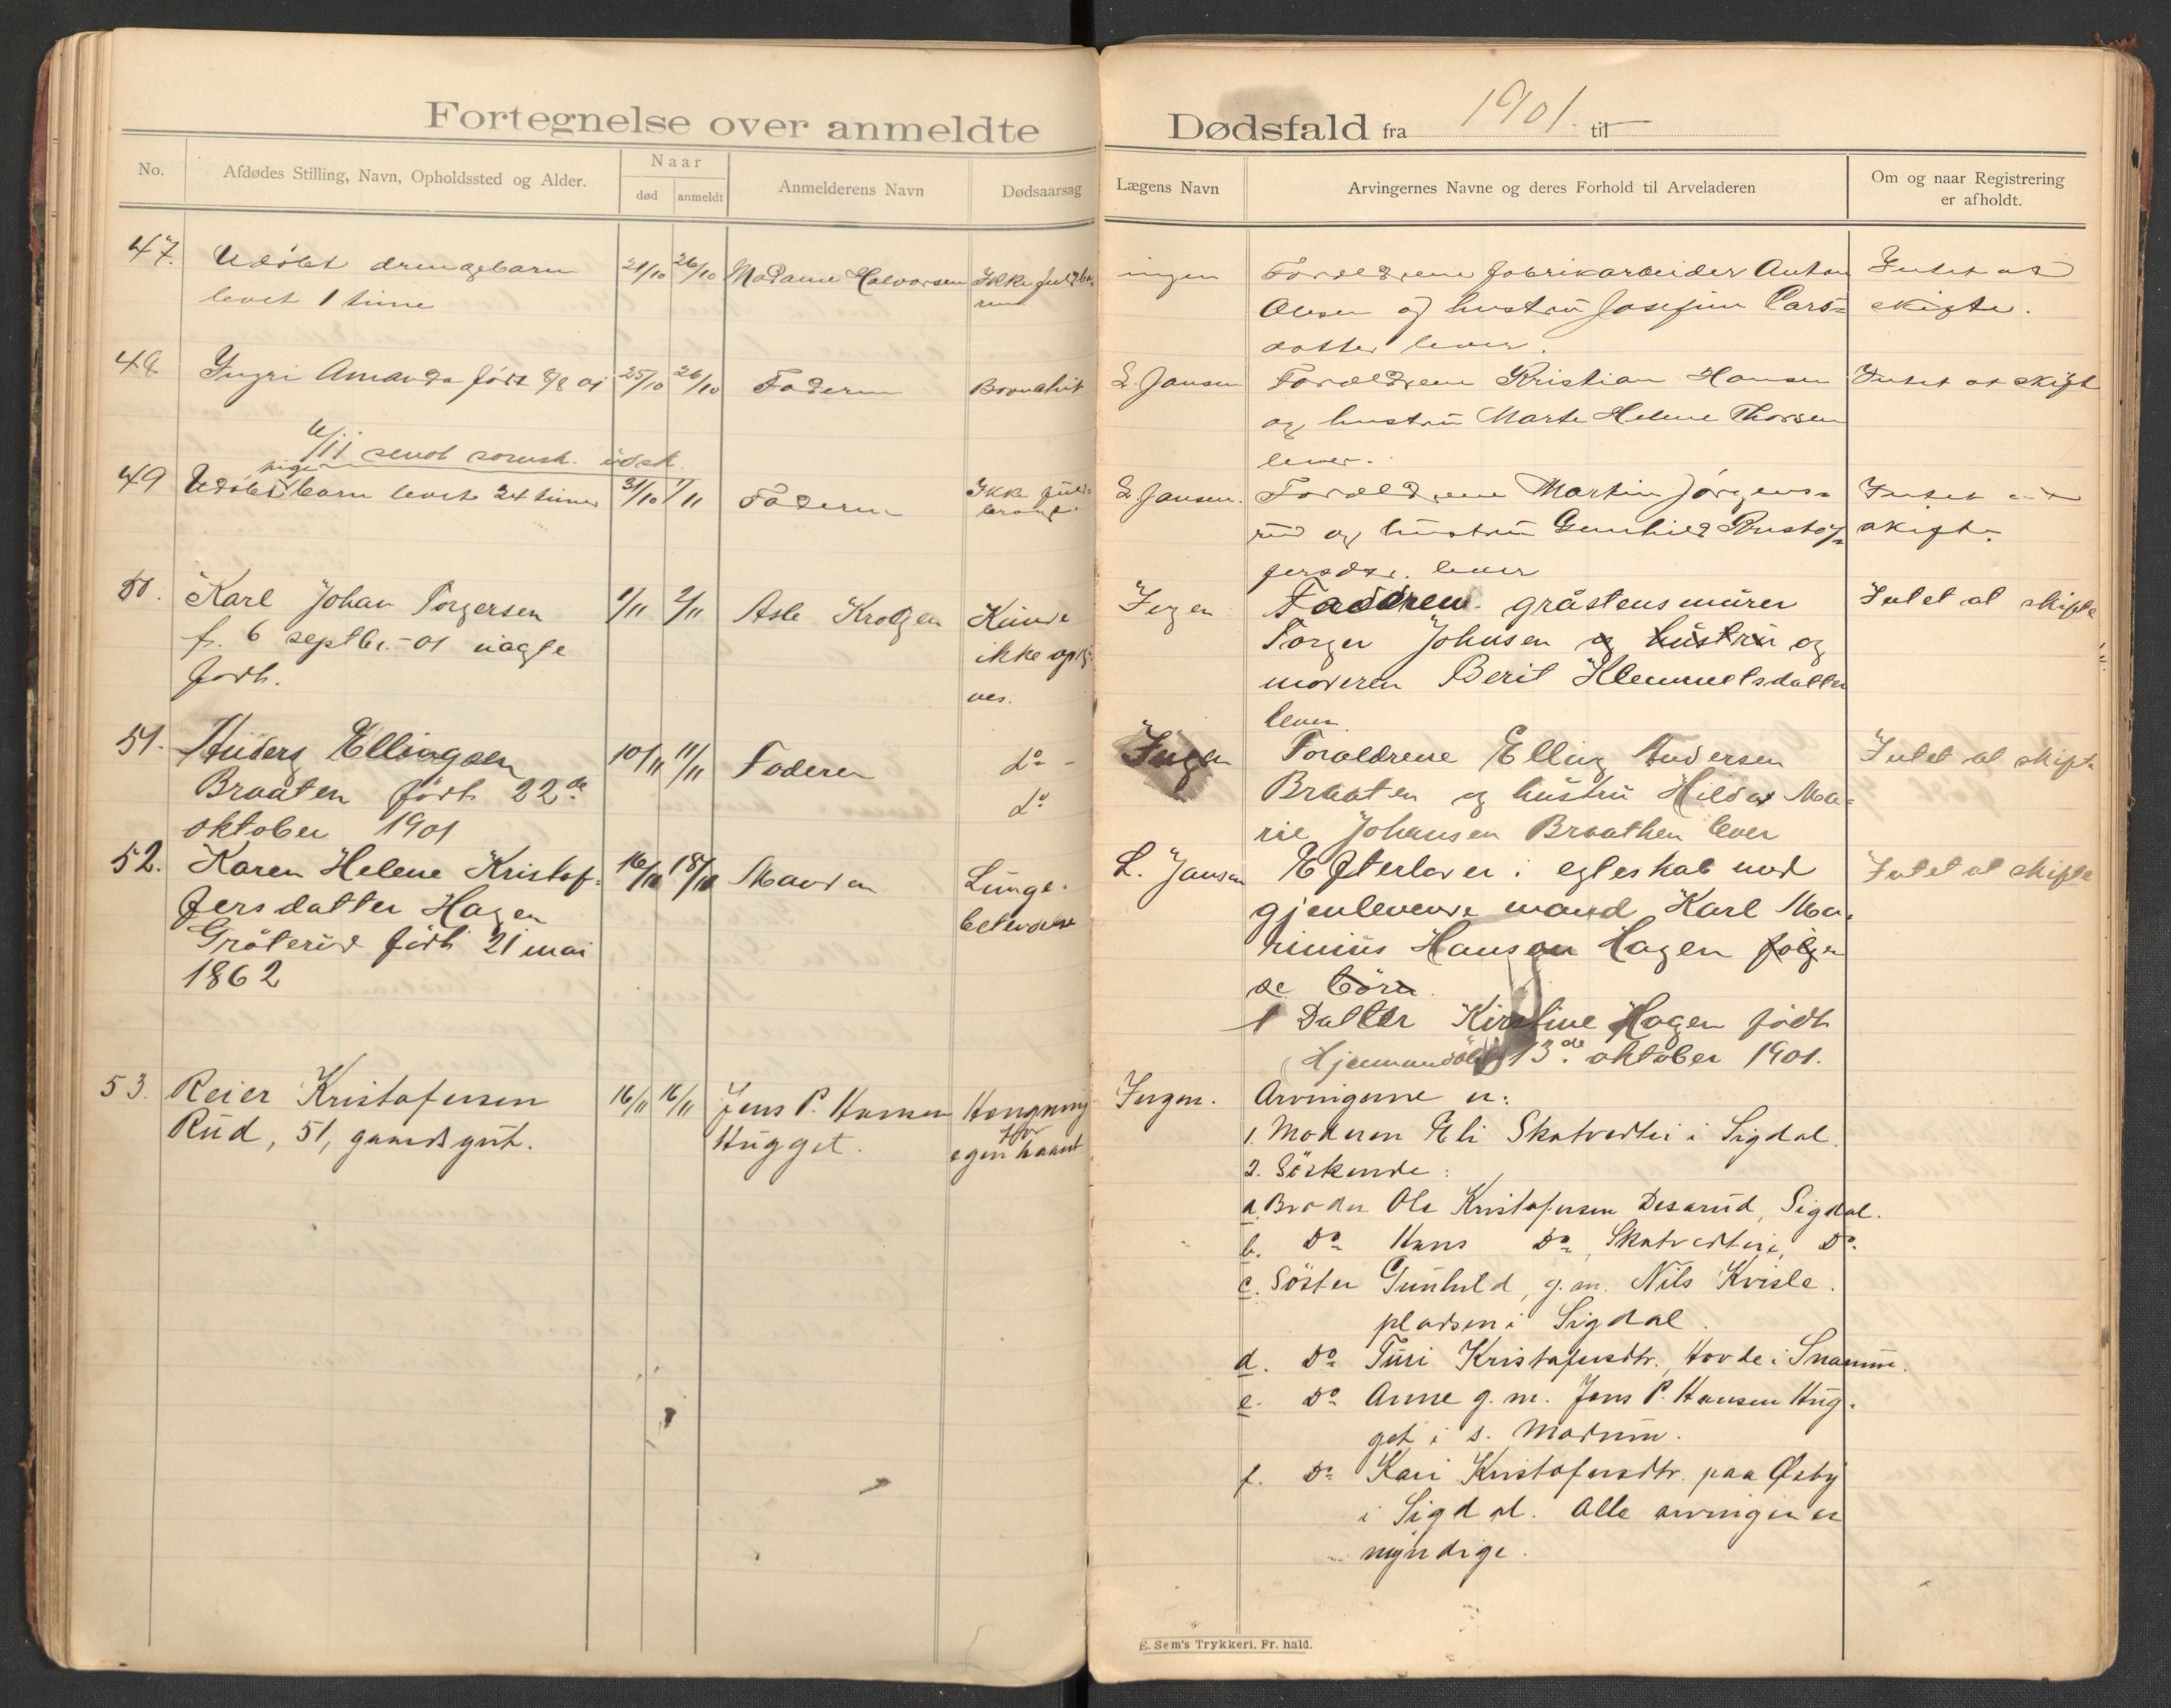 Fortegnelse over anmeldte
No.
Afdødes Stilling, Navn, Opholdssted og Alder.
Naar
død
anmeldt
Anmelderens Navn
Dødsaarsag
47. Udöbt drengebarn 21/10 26/10 Madame Halvorsen Ikke fuldbaa-
levet 1 time
48 Ingri Amanda født 8/8 01 25/10 26/10 Faderen
6/11 sendt sorensk. udsk.
pige
49 Udöbt barn levet 24 timer 31/10 1/11 Faderen Ikke
50. Karl Johan Torgersen 1/11 2/11 Asle Kunde
f. 6 septbr. 01 uægte ikke opgi-
födt. ves.
51. Anders Ellingsen 10/11 11/11 Faderen do -
Braaten födt 22de do
oktober 1901
52. Karen Helene Kristof- 16/10 18/10 Manden Lunge-
fersdatter Hagen betendelse
födt 21 mai
1862
53. Reier Kristofersen 16/11 16/11 Jens P. Hansen Hengning
Rud, 51, gaardsgut. Hugget. for
egen haand
Dødsfald fra 1901. til
Lægens Navn
Arvingernes Navne og deres Forhold til Arveladeren
Om og naar Registrering
er afholdt.
ingen Foreldrene fabrikarbeider Anton Intet at
Olesen og hustru Josefine Lars- skifte.
datter lever.
L. Jansen Foreldrene Kristian Hansen Intet at skifte
og hustru Marte Helene Thorsen
lever.
L. Jansen. Foreldrene Martin Jörgens- Intet at
rud og hustru Gunhild Kristof- skifte
fersdtr. lever
Ingen Faderen gråstensmurer Intet at skifte
Torger Johnsen og hustru og
moderen Berit Klemmetsdatter
lever
Ingen Foraldrene Elling Andersen Intet at skifte
Braaten og hustru Hilda Ma-
rie Johansen Braathen lever
L. Jansen Efterlader i egteskab med Intet at skifte
gjenlevende mand Karl Ma-
rinius Hanson Hagen følgen
de börn
1 Datter Kirstine Hagen födt
(Hjemmedöbt 13de oktober 1901.
Ingen. Arvingerne er:
1. Moderen Eli Skatvedtei i Sigdal.
2. Söskende:
a. Broder Ole Kristofersen Desarud, Sigdal.
b. Do Hans Do, Skatvedteie, Do.
c. Söster Gunhild, g.m. Nils Kvisle-
pladsen i Sigdal.
d. Do Turi Kristofersdtr., Hovde i Snarum.
e. Do Anne g.m. Jens P. Hansen Hug-
get i s. Modum.
f. Do Kari Kristofersdtr. paa Øsby
i Sigdal. Alle arvinger er
myndige.
E. Sem's Trykkeri, Fr. hald.